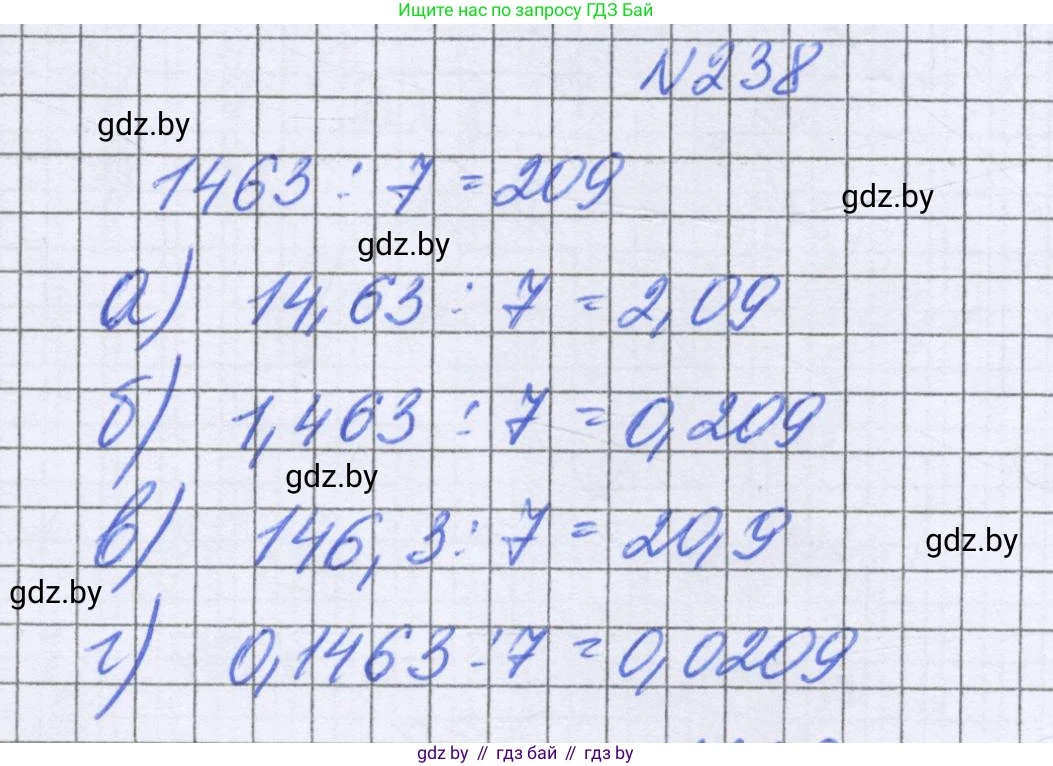 Ищите нас по запросу ГДЗ Бай
N238
gdz.by
1463 : 7 = 209
gdz.by
gdz.by
а) 14,63 : 7 = 2,09
б) 1,463 : 7 = 0,209
gdz.by
в) 146,3 : 7 = 20,9
gdz.by
gdz.by
г) 0,1463 : 7 = 0,0209
gdz by // гдз бай // гдз by